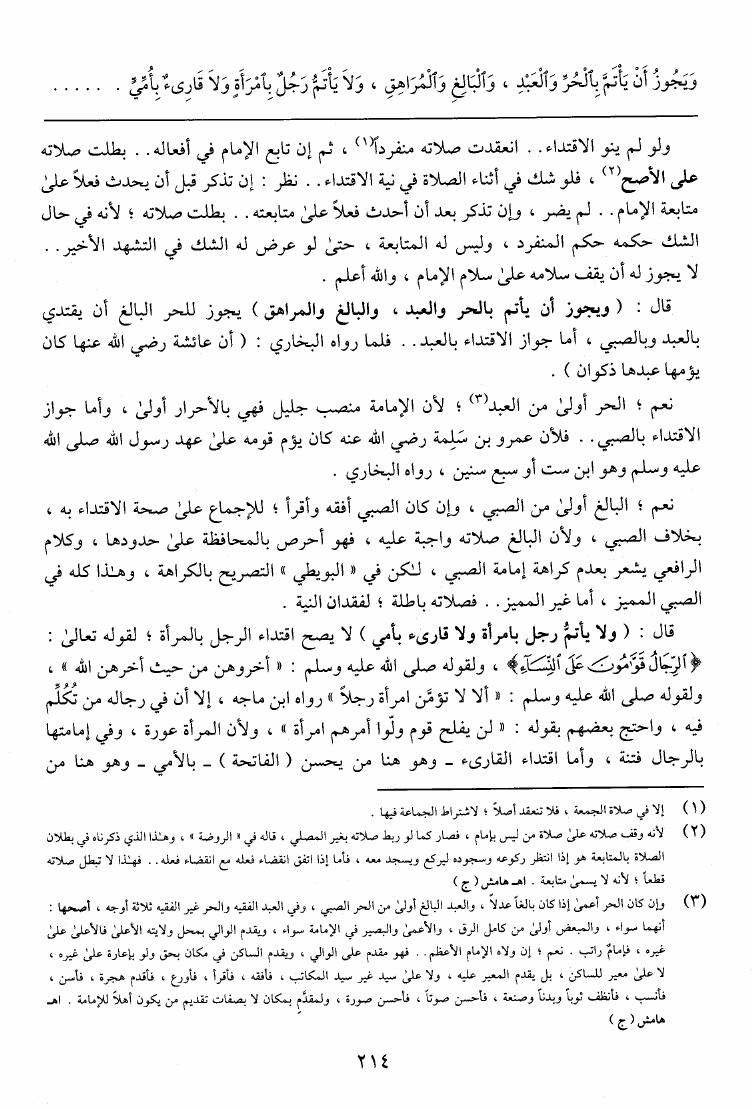 وَيَجُوزُ أَنْ يَأْتَمَّ بِٱلْحُرِّ وَٱلْعَبْدِ ، وَٱلْبَالِغِ وَٱلْمُرَاهِقِ ، وَلاَ يَأْتَمُّ رَجُلٌ بِٱمْرَأَةٍ وَلاَ قَارِىءٌ بِأُمِّيٍّ . . . . . .
ولو لم ينو الاقتداء . . انعقدت صلاته منفرداً(١) ، ثم إن تابع الإمام في أفعاله . . بطلت صلاته
على الأصح(٢) ، فلو شك في أثناء الصلاة في نية الاقتداء . . نظر : إن تذكر قبل أن يحدث فعلاً علىٰ
متابعة الإمام . . لم يضر ، وإن تذكر بعد أن أحدث فعلاً علىٰ متابعته . . بطلت صلاته ؛ لأنه في حال
الشك حكمه حكم المنفرد ، وليس له المتابعة ، حتىٰ لو عرض له الشك في التشهد الأخير . .
لا يجوز له أن يقف سلامه علىٰ سلام الإمام ، والله أعلم .
قال : ( ويجوز أن يأتم بالحر والعبد ، والبالغ والمراهق ) يجوز للحر البالغ أن يقتدي
بالعبد وبالصبي ، أما جواز الاقتداء بالعبد . . فلما رواه البخاري : ( أن عائشة رضي الله عنها كان
يؤمها عبدها ذكوان ) .
نعم ؛ الحر أولىٰ من العبد(٣) ؛ لأن الإمامة منصب جليل فهي بالأحرار أولىٰ ، وأما جواز
الاقتداء بالصبي . . فلأن عمرو بن سَلِمة رضي الله عنه كان يؤم قومه علىٰ عهد رسول الله صلى الله
عليه وسلم وهو ابن ست أو سبع سنين ، رواه البخاري .
نعم ؛ البالغ أولىٰ من الصبي ، وإن كان الصبي أفقه وأقرأ ؛ للإجماع علىٰ صحة الاقتداء به ،
بخلاف الصبي ، ولأن البالغ صلاته واجبة عليه ، فهو أحرص بالمحافظة علىٰ حدودها ، وكلام
الرافعي يشعر بعدم كراهة إمامة الصبي ، لـٰكن في « البويطي » التصريح بالكراهة ، وهـٰذا كله في
الصبي المميز ، أما غير المميز . . فصلاته باطلة ؛ لفقدان النية .
قال : ( ولا يأتمُّ رجل بامرأة ولا قارىء بأمي ) لا يصح اقتداء الرجل بالمرأة ؛ لقوله تعالىٰ :
﴿ ٱلرِّجَالُ قَوَّٰمُونَ عَلَى ٱلنِّسَآءِ ﴾ ، ولقوله صلى الله عليه وسلم : « أخروهن من حيث أخرهن الله » ،
ولقوله صلى الله عليه وسلم : « ألا لا تؤمَّن امرأة رجلاً » رواه ابن ماجه ، إلا أن في رجاله من تُكُلِّم
فيه ، واحتج بعضهم بقوله : « لن يفلح قوم ولّوا أمرهم امرأة » ، ولأن المرأة عورة ، وفي إمامتها
بالرجال فتنة ، وأما اقتداء القارىء ـ وهو هنا من يحسن ( الفاتحة ) ـ بالأمي ـ وهو هنا من
(١) إلا في صلاة الجمعة ، فلا تنعقد أصلاً ؛ لاشتراط الجماعة فيها .
(٢) لأنه وقف صلاته علىٰ صلاة من ليس بإمام ، فصار كما لو ربط صلاته بغير المصلي ، قاله في « الروضة » ، وهـٰذا الذي ذكرناه في بطلان
الصلاة بالمتابعة هو إذا انتظر ركوعه وسجوده ليركع ويسجد معه ، فأما إذا اتفق انقضاء فعله مع انقضاء فعله . . فهـٰذا لا تبطل صلاته
قطعاً ؛ لأنه لا يسمىٰ متابعة . اهـ هامش ( ج )
(٣) وإن كان الحر أعمىٰ إذا كان بالغاً عدلاً ، والعبد البالغ أولىٰ من الحر الصبي ، وفي العبد الفقيه والحر غير الفقيه ثلاثة أوجه ، أصحها :
أنهما سواء ، والمبعض أولىٰ من كامل الرق ، والأعمىٰ والبصير في الإمامة سواء ، ويقدم الوالي بمحل ولايته الأعلىٰ فالأعلىٰ علىٰ
غيره ، فإمامٌ راتب . نعم ؛ إن ولاه الإمام الأعظم . . فهو مقدم على الوالي ، ويقدم الساكن في مكان بحق ولو بإعارة علىٰ غيره ،
لا علىٰ معير للساكن ، بل يقدم المعير عليه ، ولا علىٰ سيد غير سيد المكاتب ، فأفقه ، فأقرأ ، فأورع ، فأقدم هجرة ، فأسن ،
فأنسب ، فأنظف ثوباً وبدناً وصنعة ، فأحسن صوتاً ، فأحسن صورة ، ولمقدَّمٍ بمكان لا بصفات تقديم من يكون أهلاً للإمامة . اهـ
هامش ( ج )
٢١٤